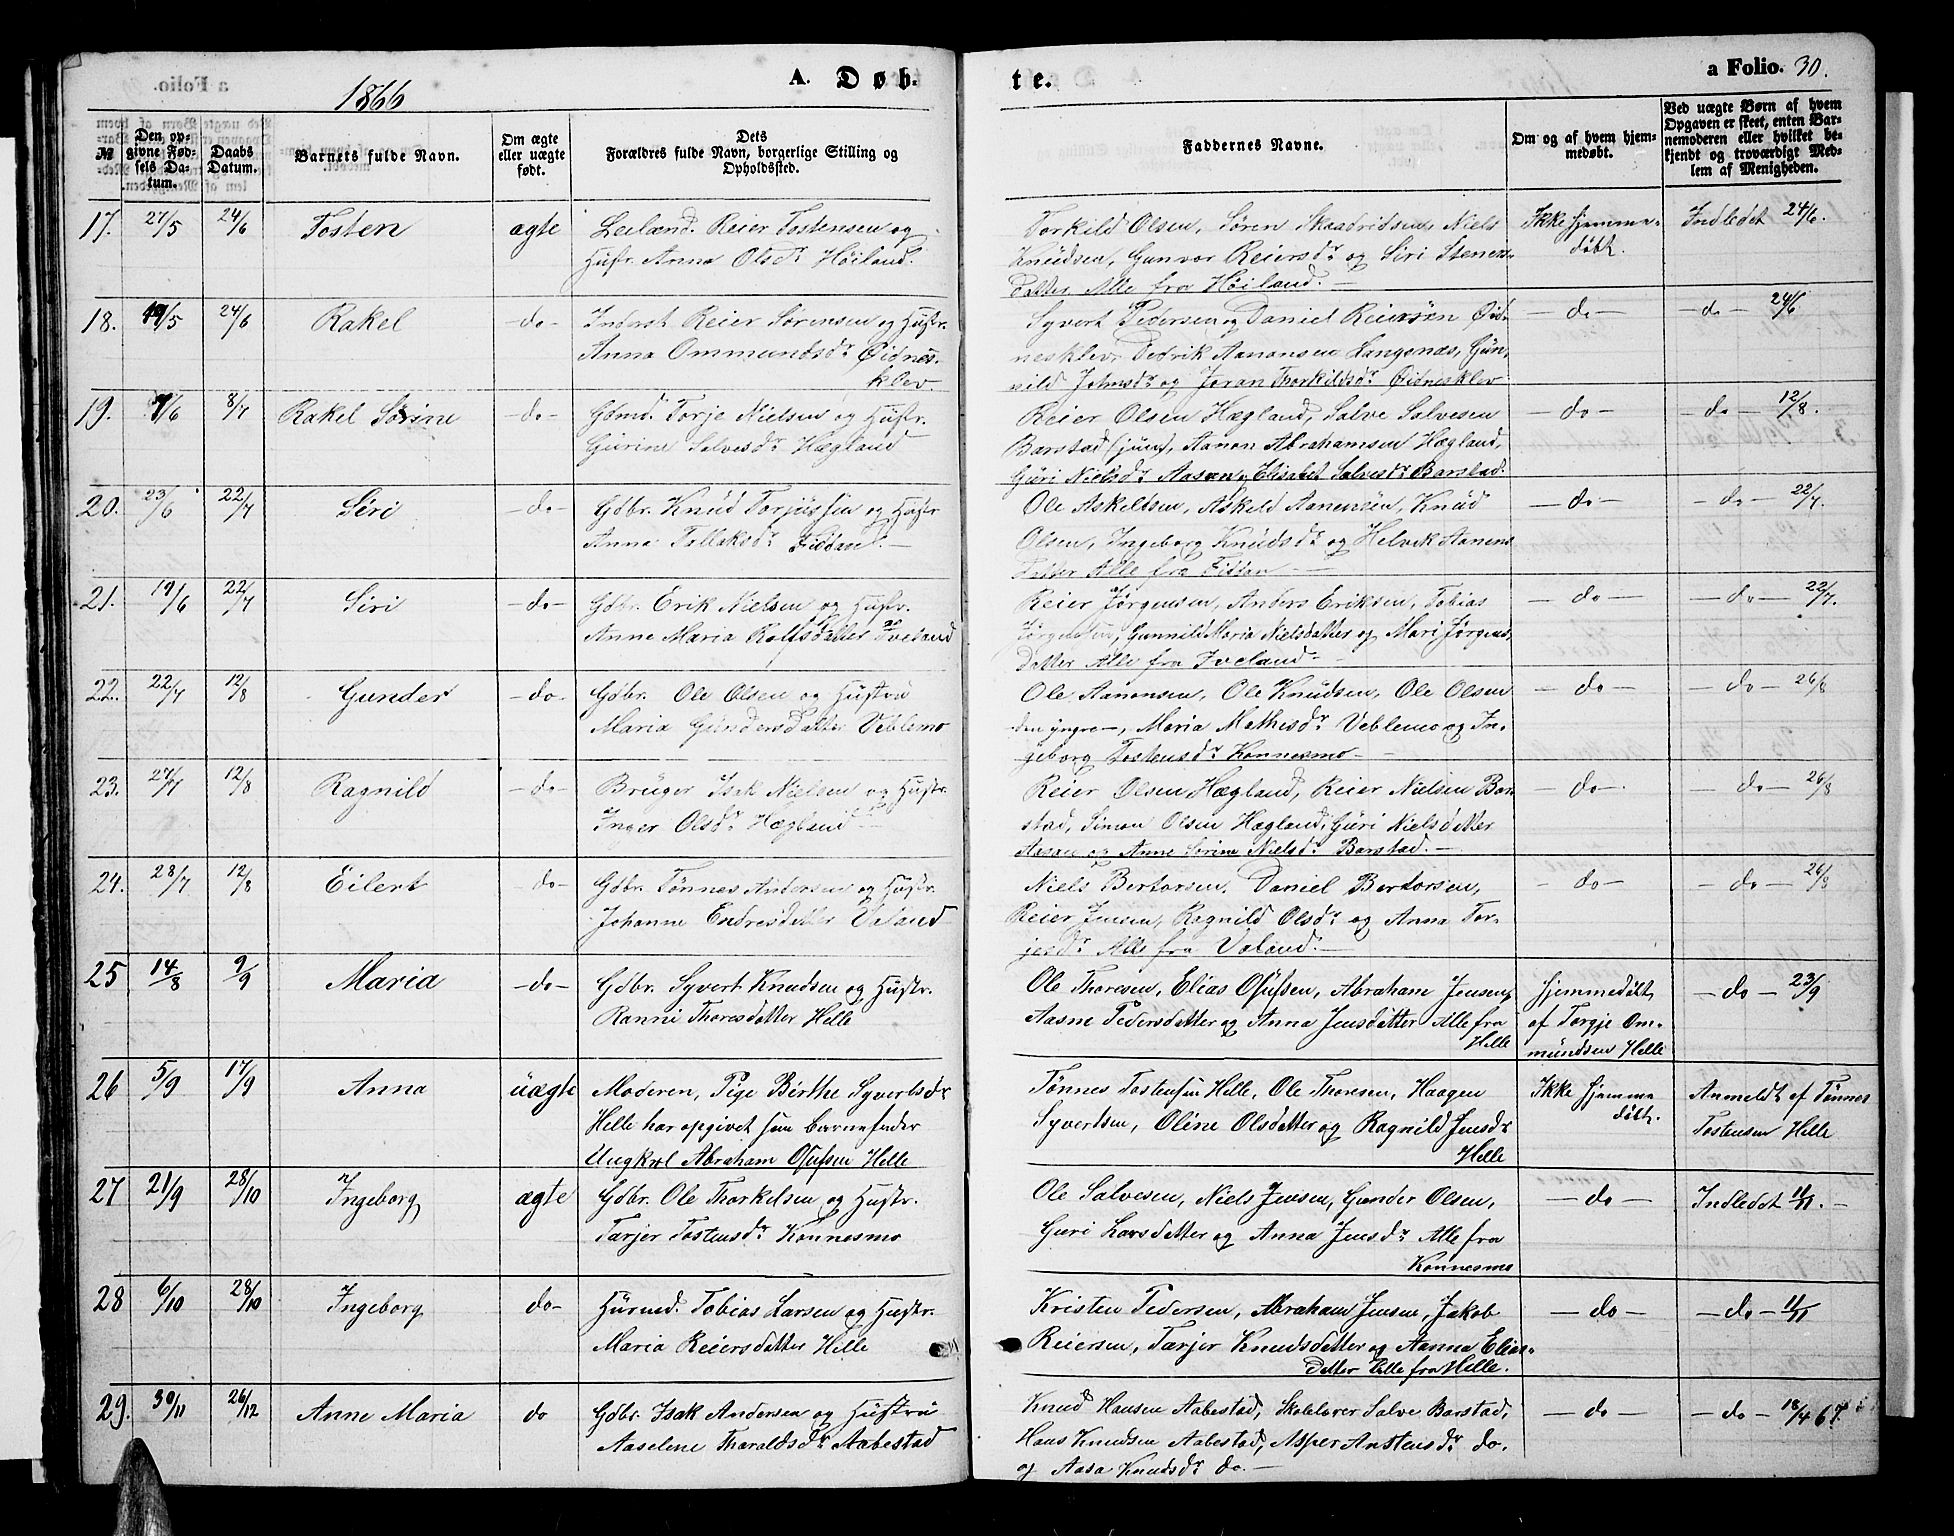 1866
A. Døb-
te.
a Folio. 30.
№
Den op-
givne Fød-
sels Da-
tum.
Daabs
Datum.
Barnets fulde Navn.
Om ægte
eller uægte
født.
Dets
Forældres fulde Navn, borgerlige Stilling og
Opholdssted.
Faddernes Navne.
Om og af hvem hjem-
medøbt.
Ved uægte Børn af hvem
Opgaven er skeet, enten Bar-
nemoderen eller hvilket be-
kjendt og troværdigt Med-
lem af Menigheden.
17. 27/5 24/6 Tosten ægte Leilænd. Reier Tostensen og
Hustr. Anna Olsdr Høiland.
Torkild Olsen, Søren Skaadridsen, Niels
Knudsen, Gunvor Reiersdr og Siri Steners-
datter Alle fra Høiland.
Ikke hjemme-
døbt.
Indledet 24/6.
18. 24/6 Rakel - do - Inderst Reier Sørensen og Hustr.
Anna Ommundsdr Øidnes-
klev.
Syvert Pedersen og Daniel Reiersen Øid-
nesklev, Didrik Aanonsen Langenæs, Gun-
vild Johnsdr og Joran Thorkildsdr Øidnesklev
- do -
- do - 24/6
19. 7/6 8/7 Rakel Sørine - do - Gdmd. Torje Nielsen og Hustr.
Gurine Salvesdr Hægland
Reier Olsen Hægland, Salve Salvesen
Barstad (jun), Aanon Abrahamsen Hægland,
Guri Nielsdr Aasen og Elisabet Salvesdr Barstad.
- do -
- do - 12/8.
20. 23/6 22/7 Siri - do - Gdbr. Knud Torjussen og Hustr
Anna Tellaksdr Fiddan.
Ole Askeldsen, Askeld Aanensen, Knud
Olsen, Ingeborg Knudsdr og Helvik Aanens
datter Alle fra Fiddan
- do -
- do - 22/7.
21. 19/6 22/7 Siri - do - Gdbr. Erik Nielsen og Hustr.
Anne Maria Rolfsdatter Iveland
Reier Jørgensen, Anders Eriksen, Tobias
Jørgensen, Gunnild Maria Nielsdatter og Mari Jørgens
datter Alle fra Iveland
- do -
- do - 22/7.
22. 22/7 12/8 Gunder - do - Gdbr. Ole Olsen og Hustru
Maria Gundersdatter Veblemo
Ole Aanonsen, Ole Knudsen, Ole Olsen
den yngre, Maria Mathisdr Veblemo og In-
geborg Tostensdr Konnesmo
- do -
- do - 26/8
23. 27/7 12/8 Ragnild - do - Bruger Isak Nielsen og Hustr.
Inger Olsdr Hægland
Reier Olsen Hægland, Reier Nielsen Bar
stad, Simon Olsen Hægland, Guri Nielsdatter
Aasen og Anne Sørine Nielsdr Barstad.
- do -
- do - 26/8
24. 28/7 12/8 Eilert - do - Gdbr. Tønnes Andersen og Hustr.
Johanne Endresdatter Valand
Niels Bertorsen, Daniel Bertorsen,
Reier Jensen, Ragnild Olsdr og Anna Tor-
jesdr Alle fra Valand
- do -
- do - 26/8
25 14/8 9/9 Maria - do - Gdbr. Syvert Knudsen og Hustr.
Ranni Thoresdatter Helle
Ole Thoresen, Elias Olufsen, Abraham Jensen,
Aasne Pedersdatter og Anna Jensdatter Alle fra
Helle
Hjemmedøbt
af Torgje Om-
mundsen Helle
- do - 23/9
26 5/9 17/9 Anna uægte Moderen, Pige Birthe Syvertsdr
Helle har opgivet som Barnefader
Ungkarl Abraham Olufsen Helle
Tønnes Tostensen Helle, Ole Thoresen, Haagen
Syvertsen, Oline Olsdatter og Ragnild Jensdr
Helle
Ikke hjemme
døbt.
Anmeldt af Tønnes
Tostensen Helle
27 21/9 28/10 Ingeborg ægte Gdbr. Ole Thorkelsen og Hustr.
Tarjer Tostensdr Konnesmo
Ole Salvesen, Niels Jensen, Gunder Olsen,
Guri Larsdatter og Anna Jensdr Alle fra
Konnesmo
- do -
Indledet 11/11. -
28 6/10 28/10 Ingeborg do - Huusmd. Tobias Larsen og Hustr.
Maria Reiersdatter Helle
Kristen Pedersen, Abraham Jensen, Jakob
Reiersen, Tarjer Knudsdatter og Aanna Elias-
datter Alle fra Helle.
- do -
- do - 11/11
29. 30/11 26/12 Anne Maria do Gdbr. Isak Andersen og Hustru
Aaselene Tharaldsdr Aabestad
Knud Hansen Aabestad, Skolelærer Salve Barstad,
Hans Knudsen Aabestad, Asper Anstensdr do.
og Aasa Knudsdr do. -
- do -
- do - 18/4 67.